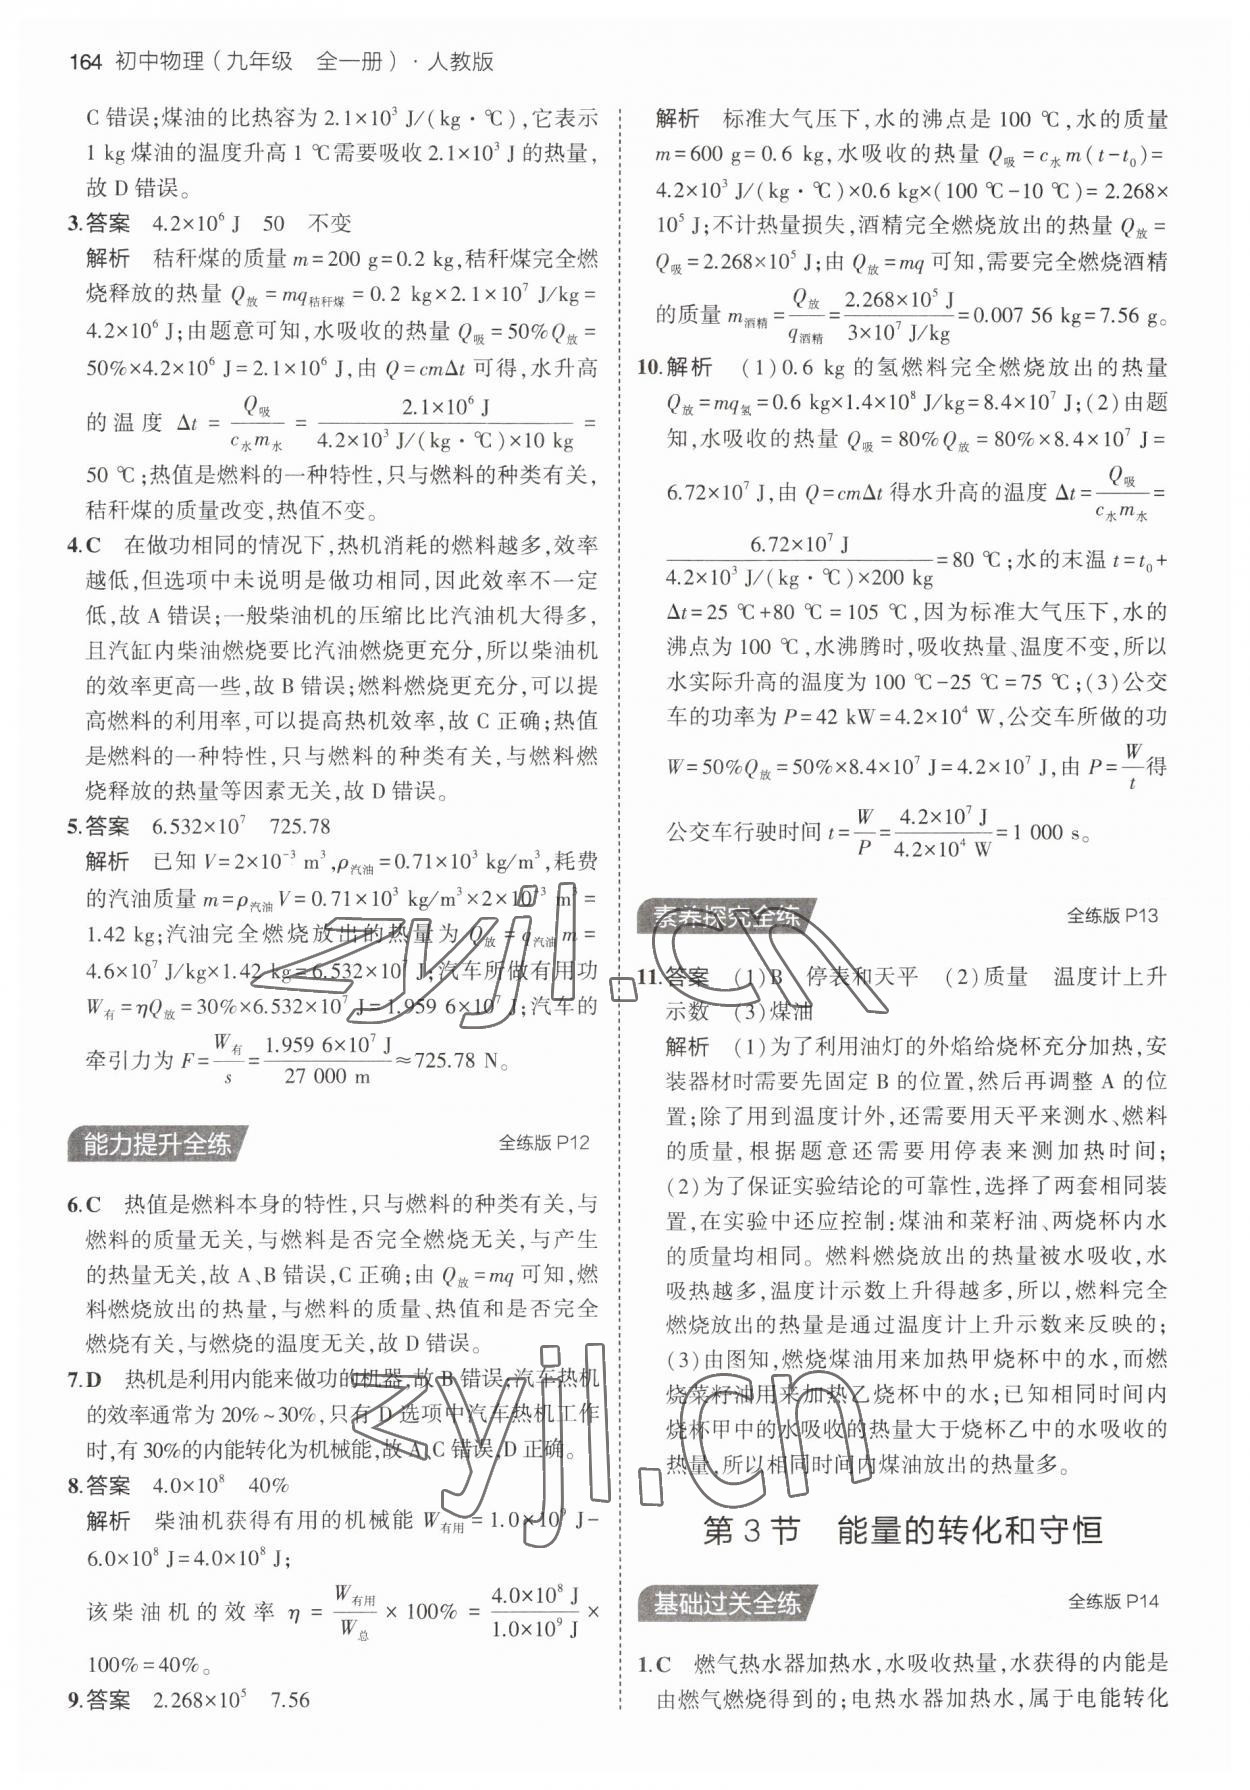 164 初中物理(九年级 全一册)·人教版
C 错误;煤油的比热容为 2.1×10³ J/(kg·℃),它表示
1 kg 煤油的温度升高 1 ℃需要吸收 2.1×10³ J 的热量,
故 D 错误。
3.答案 4.2×10⁶ J 50 不变
解析 秸秆煤的质量 m=200 g=0.2 kg,秸秆煤完全燃
烧释放的热量 Q放=mq秸秆煤=0.2 kg×2.1×10⁷ J/kg=
4.2×10⁶ J;由题意可知,水吸收的热量 Q吸=50%Q放=
50%×4.2×10⁶ J=2.1×10⁶ J,由 Q=cmΔt 可得,水升高
的温度 Δt=Q吸/(c水m水)=2.1×10⁶ J/(4.2×10³ J/(kg·℃)×10 kg)=
50 ℃;热值是燃料的一种特性,只与燃料的种类有关,
秸秆煤的质量改变,热值不变。
4.C 在做功相同的情况下,热机消耗的燃料越多,效率
越低,但选项中未说明是做功相同,因此效率不一定
低,故 A 错误;一般柴油机的压缩比比汽油机大得多,
且汽缸内柴油燃烧要比汽油燃烧更充分,所以柴油机
的效率更高一些,故 B 错误;燃料燃烧更充分,可以提
高燃料的利用率,可以提高热机效率,故 C 正确;热值
是燃料的一种特性,只与燃料的种类有关,与燃料燃
烧释放的热量等因素无关,故 D 错误。
5.答案 6.532×10⁷ 725.78
解析 已知 V=2×10⁻³ m³,ρ汽油=0.71×10³ kg/m³,耗费
的汽油质量 m=ρ汽油V=0.71×10³ kg/m³×2×10⁻³ m³=
1.42 kg;汽油完全燃烧放出的热量为 Q放=q汽油m=
4.6×10⁷ J/kg×1.42 kg=6.532×10⁷ J;汽车所做有用功
W有=ηQ放=30%×6.532×10⁷ J=1.959 6×10⁷ J;汽车的
牵引力为 F=W有/s=1.959 6×10⁷ J/27 000 m≈725.78 N。
能力提升全练 全练版 P12
6.C 热值是燃料本身的特性,只与燃料的种类有关,与
燃料的质量无关,与燃料是否完全燃烧无关,与产生
的热量无关,故 A、B 错误,C 正确;由 Q放=mq 可知,燃
料燃烧放出的热量,与燃料的质量、热值和是否完全
燃烧有关,与燃烧的温度无关,故 D 错误。
7.D 热机是利用内能来做功的机器,故 B 错误;汽车热机
的效率通常为 20%~30%,只有 D 选项中汽车热机工作
时,有 30%的内能转化为机械能,故 A、C 错误,D 正确。
8.答案 4.0×10⁸ 40%
解析 柴油机获得有用的机械能 W有用=1.0×10⁹ J-
6.0×10⁸ J=4.0×10⁸ J;
该柴油机的效率 η=W有用/W总×100%=4.0×10⁸ J/1.0×10⁹ J×
100%=40%。
9.答案 2.268×10⁵ 7.56
解析 标准大气压下,水的沸点是 100 ℃,水的质量
m=600 g=0.6 kg,水吸收的热量 Q吸=c水m(t-t₀)=
4.2×10³ J/(kg·℃)×0.6 kg×(100 ℃-10 ℃)=2.268×
10⁵ J;不计热量损失,酒精完全燃烧放出的热量 Q放=
Q吸=2.268×10⁵ J;由 Q放=mq 可知,需要完全燃烧酒精
的质量 m酒精=Q放/q酒精=2.268×10⁵ J/3×10⁷ J/kg=0.007 56 kg=7.56 g。
10.解析 (1)0.6 kg 的氢燃料完全燃烧放出的热量
Q放=mq氢=0.6 kg×1.4×10⁸ J/kg=8.4×10⁷ J;(2)由题
知,水吸收的热量 Q吸=80%Q放=80%×8.4×10⁷ J=
6.72×10⁷ J,由 Q=cmΔt 得水升高的温度 Δt=Q吸/(c水m水)=
6.72×10⁷ J/(4.2×10³ J/(kg·℃)×200 kg)=80 ℃;水的末温 t=t₀+
Δt=25 ℃+80 ℃=105 ℃,因为标准大气压下,水的
沸点为 100 ℃,水沸腾时,吸收热量、温度不变,所以
水实际升高的温度为 100 ℃-25 ℃=75 ℃;(3)公交
车的功率为 P=42 kW=4.2×10⁴ W,公交车所做的功
W=50%Q放=50%×8.4×10⁷ J=4.2×10⁷ J,由 P=W/t得
公交车行驶时间 t=W/P=4.2×10⁷ J/4.2×10⁴ W=1 000 s。
素养探究全练 全练版 P13
11.答案 (1)B 停表和天平 (2)质量 温度计上升
示数 (3)煤油
解析 (1)为了利用油灯的外焰给烧杯充分加热,安
装器材时需要先固定 B 的位置,然后再调整 A 的位
置;除了用到温度计外,还需要用天平来测水、燃料
的质量,根据题意还需要用停表来测加热时间;
(2)为了保证实验结论的可靠性,选择了两套相同装
置,在实验中还应控制:煤油和菜籽油、两烧杯内水
的质量均相同。燃料燃烧放出的热量被水吸收,水
吸热越多,温度计示数上升得越多,所以,燃料完全
燃烧放出的热量是通过温度计上升示数来反映的;
(3)由图知,燃烧煤油用来加热甲烧杯中的水,而燃
烧菜籽油用来加热乙烧杯中的水;已知相同时间内
烧杯甲中的水吸收的热量大于烧杯乙中的水吸收的
热量,所以相同时间内煤油放出的热量多。
第 3 节 能量的转化和守恒
基础过关全练 全练版 P14
1.C 燃气热水器加热水,水吸收热量,水获得的内能是
由燃气燃烧得到的;电热水器加热水,属于电能转化
zyjl.cn
zyjl.cn